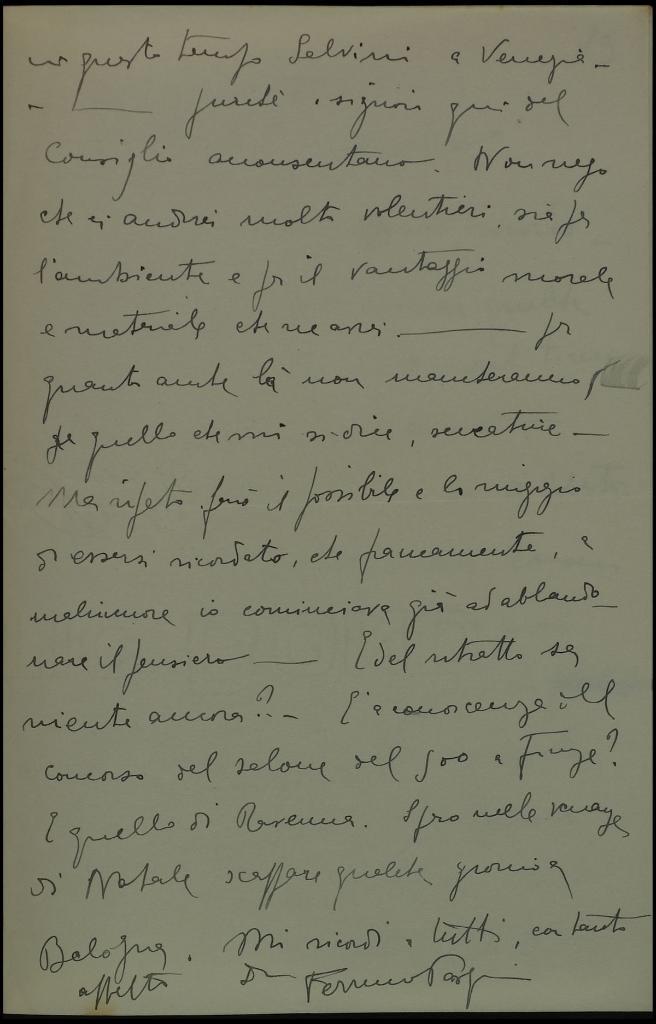 in questo tempo Selvini a Venezia –
– —— purché i signori qui del
Consiglio acconsentano. Non nego
che ci andrei molto volentieri, sia per
l'ambiente e per il vantaggio morale
e materiale che ne avrei. —— per
quanto anche là non mancheranno,
per quello che mi si dice, seccature –
Ma ripeto farò il possibile e lo
di essersi ricordato, che francamente, a
malincuore io cominciavo già ad abbando–
nare il pensiero —— E del ritratto sa
niente ancora? – È a conoscenza del
concorso del salone del 500 a Firenze?
E quello di Ravenna. Spero nelle vacanze
di Natale scappare qualche giorno a
Bologna. Mi ricordi a tutti, con tanto
affetto Ferruccio